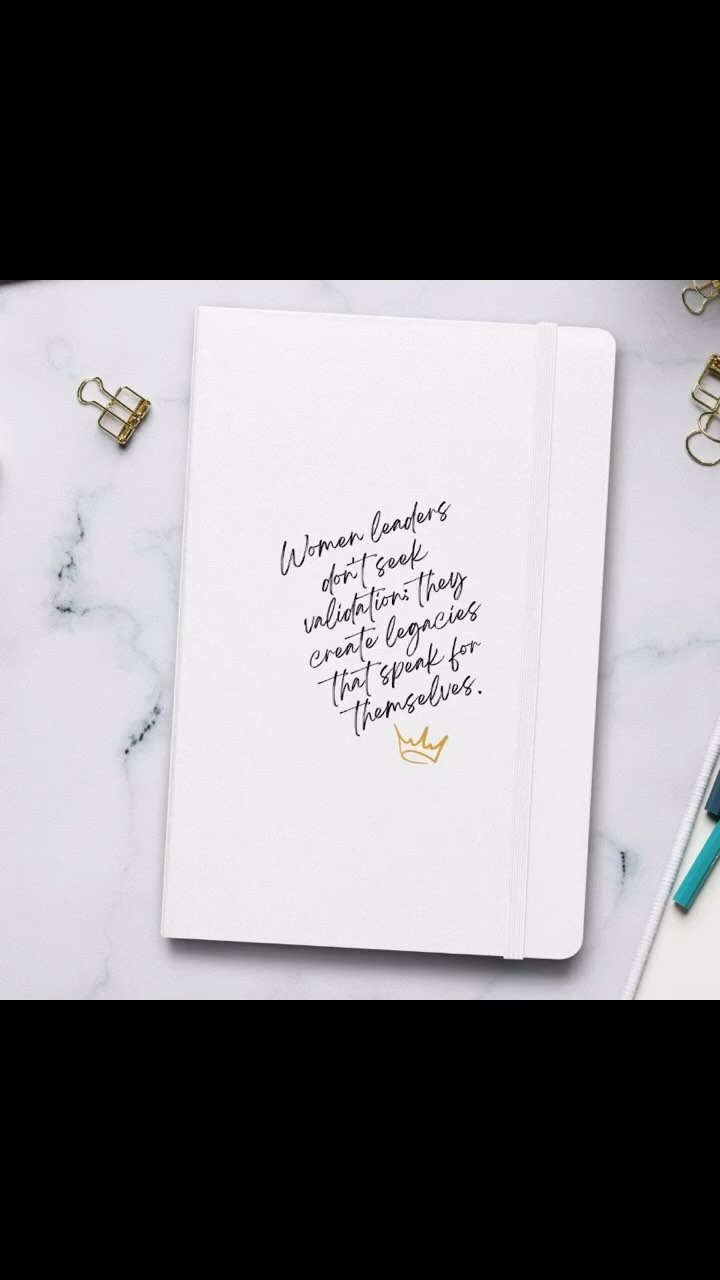 Women leaders
don't seek
validation; they
create legacies
that speak for
themselves.